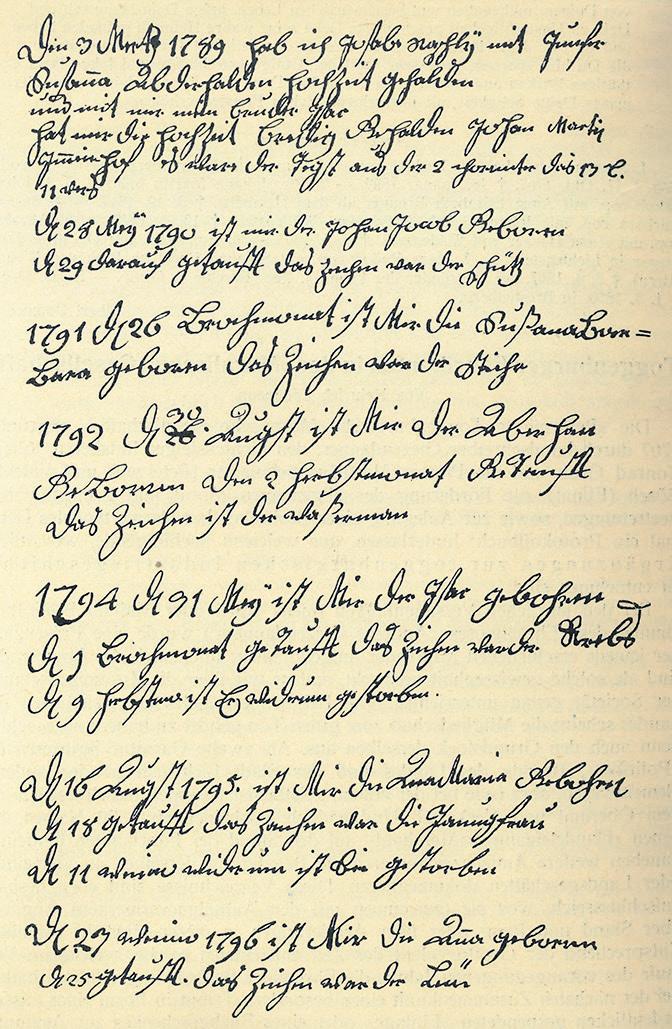 Den 3 Mertz 1789 hab ich Josabe Nasslÿ mit Junfer
Susanna Abderhalden hochzeit gehalden
und mit mir mein bruder Isac
hat mir die hochzeit bredig Rehalden Johan Martin
Immerhof es ware der Text aus der 2 chorinter das 13 C.
11 vers
D 28 Meÿ 1790 ist mir der Johan Jacob Reboren
D 29 darauf getaufft das Zechen war der schütz
1791 D 26 Brachmonat ist Mir die Susanabar=
bara geboren das Zeichen war der Stiehr
30
1792 D 28. Augst ist Mir Der Aberham
Reboren Den 2 herbstmonat Retaufft
das Zeichen ist der waßerman
1794 D 31 Meÿ ist Mir der Isac gebohren
D 1 Brachmonat getaufft das Zeichen war der Krebs
D 9 herbstmo ist Er widerum gestorben.
D 16 Augst 1795. ist Mir die AnaMaria Rebohren
D 18 getaufft das Zaichen war die Jaungfrau
D 11 weinmo widerum ist Sie gestorben
D 23 weinmo 1796 ist Mir die Ana geboren
D 25 getaufft. das Zeichen war der Leü